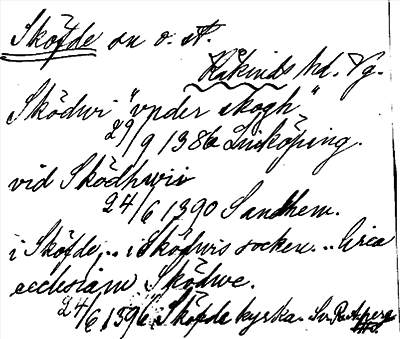 Sköfde sn o. st.
Kåkinds hd. Vg.
Sködwi "vnder skogh"
29/9 1386 Linköping.
vid Sködhwii
24/6 1390 Sandhem.
i Sköfde... i Sköfwis socken... Circa
ecclesiam Sködwe.
24/6 1396 Sköfde kyrka. Sv. R.